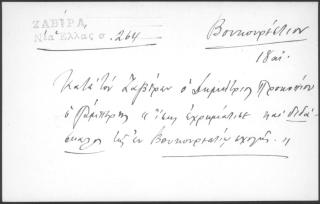 ΖΑΒΙΡΑ,
Νέα Ἑλλάς σ. 264
Βουκουρέστιον
18 αἰ.
Κατὰ τὸν Ζαβίραν ὁ Δημήτριος Προκοπίου
ὁ Πάμπερης " ἐχρημάτισε καὶ διδά-
σκαλος τῆς ἐν Βουκουρεστίῳ σχολῆς. "